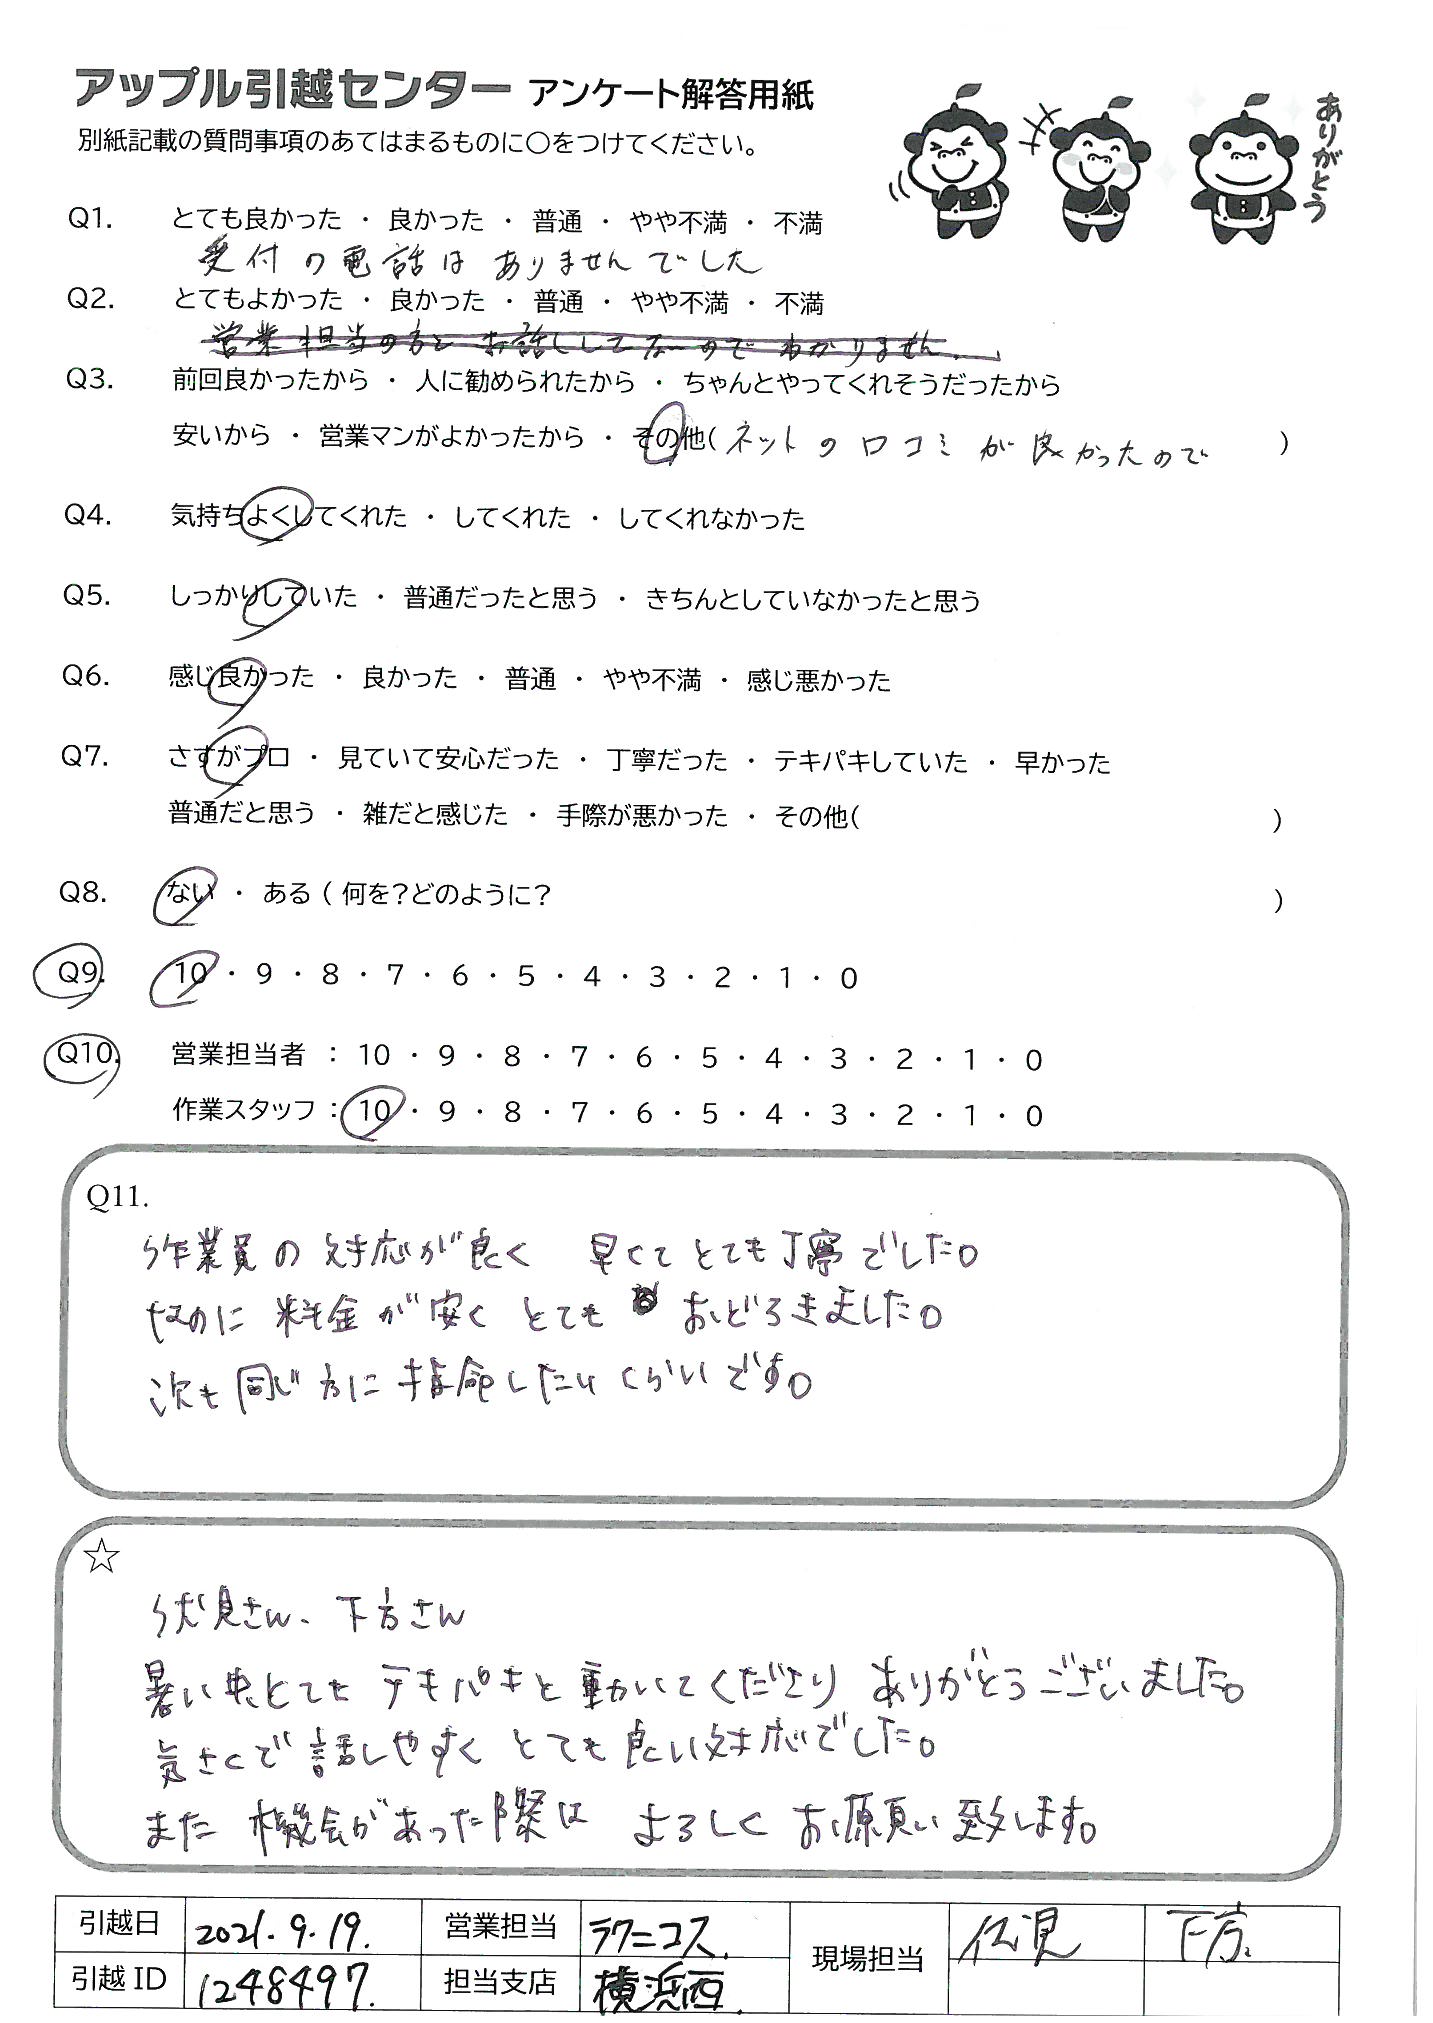 アップル引越センター アンケート解答用紙
ありがとう
別紙記載の質問事項のあてはまるものに○をつけてください。
Q1. とても良かった ・ 良かった ・ 普通 ・ やや不満 ・ 不満
受付の電話は ありませんでした
Q2. とてもよかった ・ 良かった ・ 普通 ・ やや不満 ・ 不満
営業担当の方と お話ししてないのでわかりません。
Q3. 前回良かったから ・ 人に勧められたから ・ ちゃんとやってくれそうだったから
安いから ・ 営業マンがよかったから ・ その他( ネットの口コミが良かったので )
Q4. 気持ちよくしてくれた ・ してくれた ・ してくれなかった
Q5. しっかりしていた ・ 普通だったと思う ・ きちんとしていなかったと思う
Q6. 感じ良かった ・ 良かった ・ 普通 ・ やや不満 ・ 感じ悪かった
Q7. さすがプロ ・ 見ていて安心だった ・ 丁寧だった ・ テキパキしていた ・ 早かった
普通だと思う ・ 雑だと感じた ・ 手際が悪かった ・ その他( )
Q8. ない ・ ある ( 何を?どのように? )
Q9. 10 ・ 9 ・ 8 ・ 7 ・ 6 ・ 5 ・ 4 ・ 3 ・ 2 ・ 1 ・ 0
Q10. 営業担当者 : 10 ・ 9 ・ 8 ・ 7 ・ 6 ・ 5 ・ 4 ・ 3 ・ 2 ・ 1 ・ 0
作業スタッフ : 10 ・ 9 ・ 8 ・ 7 ・ 6 ・ 5 ・ 4 ・ 3 ・ 2 ・ 1 ・ 0
Q11.
作業員の対応が良く 早くてとても丁寧でした。
なのに料金が安く とても おどろきました。
次も同じ方に指命したいくらいです。
☆
伏見さん、下方さん
暑い中とても テキパキと動いてくださり ありがとうございました。
気さくで話しやすく とても良い対応でした。
また機会があった際は よろしくお願い致します。
引越日 2021.9.19. 営業担当 ラクニコス. 現場担当 伏見 下方.
引越ID 1248497. 担当支店 横浜西.